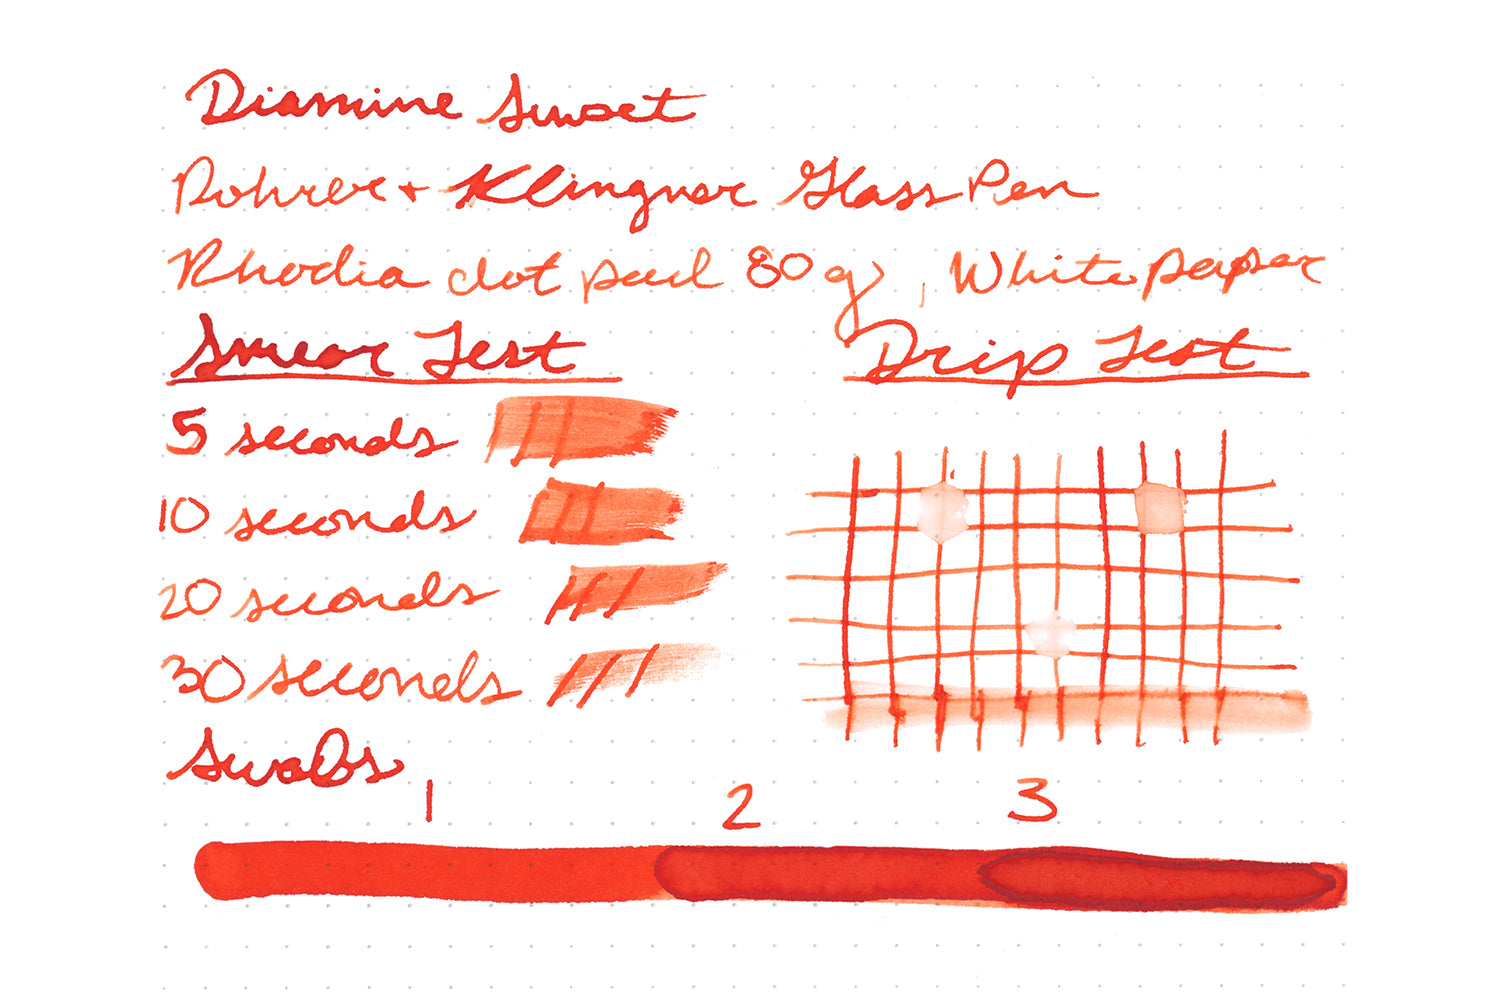 Diamine Sunset
Rohrer + Klingner Glass Pen
Rhodia dot pad 80g, White paper
Smear Test
Drip Test
5 seconds
10 seconds
20 seconds
30 seconds
Swabs
1 2 3